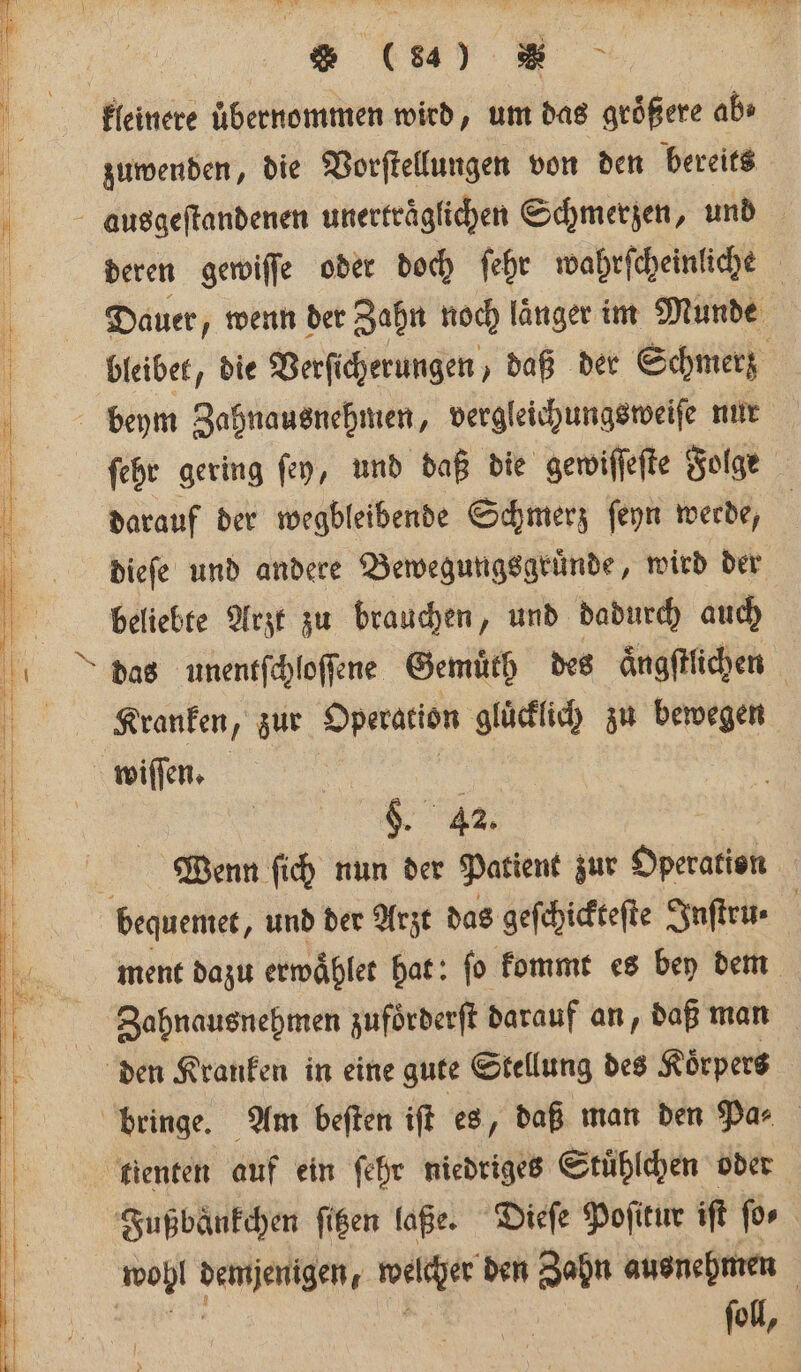 ❉ (84) ❉
kleinere uͤbernommen wird, um das groͤßere ab⸗
zuwenden, die Vorſtellungen von den bereits
ausgeſtandenen unertraͤglichen Schmerzen, und
deren gewiſſe oder doch ſehr wahrſcheinliche
Dauer, wenn der Zahn noch laͤnger im Munde
bleibet, die Verſicherungen, daß der Schmerz
beym Zahnausnehmen, vergleichungsweiſe nur
ſehr gering ſey, und daß die gewiſſeſte Folge
darauf der wegbleibende Schmerz ſeyn werde,
dieſe und andere Bewegungsgruͤnde, wird der
beliebte Arzt zu brauchen, und dadurch auch
das unentſchloſſene Gemuͤth des aͤngſtlichen
Kranken, zur Operation gluͤcklich zu bewegen
wiſſen.
§. 42.
Wenn ſich nun der Patient zur Operation
bequemet, und der Arzt das geſchickteſte Inſtru⸗
ment dazu erwaͤhlet hat: ſo kommt es bey dem
Zahnausnehmen zufoͤrderſt darauf an, daß man
den Kranken in eine gute Stellung des Koͤrpers
bringe. Am beſten iſt es, daß man den Pa⸗
tienten auf ein ſehr niedriges Stuͤhlchen oder
Fußbaͤnkchen ſitzen laße. Dieſe Poſitur iſt ſo⸗
wohl demjenigen, welcher den Zahn ausnehmen
ſoll,